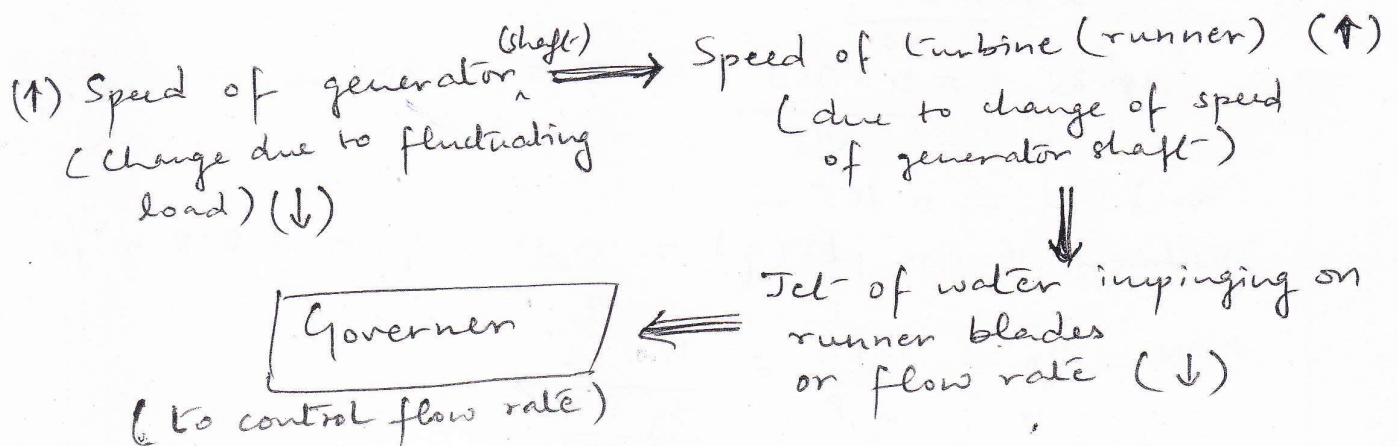 (↑) Speed of generator (shaft) ⟹ Speed of turbine (runner) (↑)
(Change due to fluctuating
load) (↓)
(due to change of speed
of generator shaft)
Jet of water impinging on
runner blades
or flow rate (↓)
Governer
(to control flow rate)